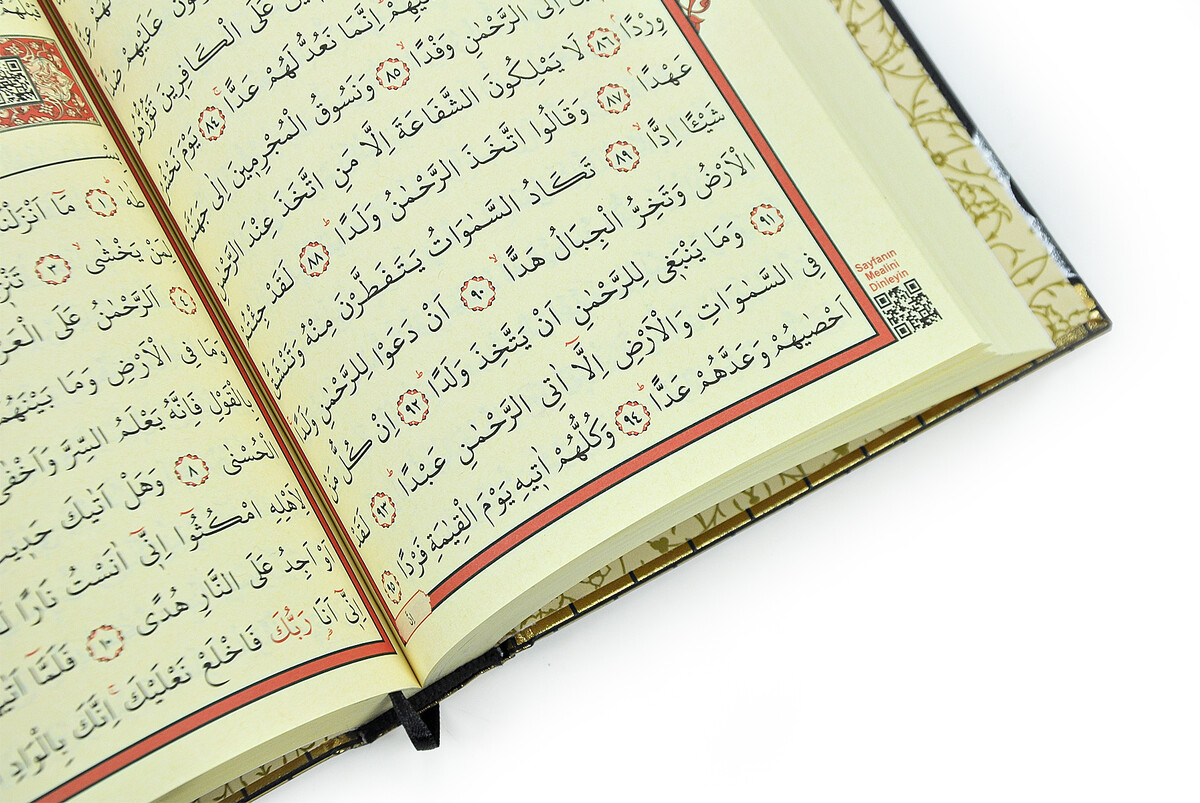 عَلَيْهِمْ
عَلَى الْكَافِرِينَ تَؤُزُّهُمْ
اِنَّمَا نَعُدُّ لَهُمْ عَدًّا ﴿٨٤﴾ يَوْمَ نَحْشُرُ
اِلَى الرَّحْمٰنِ وَفْدًا ﴿٨٥﴾ وَنَسُوقُ الْمُجْرِمِينَ اِلٰى جَهَنَّمَ
وِرْدًا ﴿٨٦﴾ لَا يَمْلِكُونَ الشَّفَاعَةَ اِلَّا مَنِ اتَّخَذَ عِنْدَ الرَّحْمٰنِ
عَهْدًا ﴿٨٧﴾ وَقَالُوا اتَّخَذَ الرَّحْمٰنُ وَلَدًا ﴿٨٨﴾ لَقَدْ جِئْتُمْ
شَيْـًٔا اِدًّا ﴿٨٩﴾ تَكَادُ السَّمٰوَاتُ يَتَفَطَّرْنَ مِنْهُ وَتَنْشَقُّ
الْاَرْضُ وَتَخِرُّ الْجِبَالُ هَدًّا ﴿٩٠﴾ اَنْ دَعَوْا لِلرَّحْمٰنِ وَلَدًا
﴿٩١﴾ وَمَا يَنْبَغِى لِلرَّحْمٰنِ اَنْ يَتَّخِذَ وَلَدًا ﴿٩٢﴾ اِنْ كُلُّ مَنْ
فِى السَّمٰوَاتِ وَالْاَرْضِ اِلَّٓا اٰتِى الرَّحْمٰنِ عَبْدًا ﴿٩٣﴾ لَقَدْ
اَحْصٰيهُمْ وَعَدَّهُمْ عَدًّا ﴿٩٤﴾ وَكُلُّهُمْ اٰتِيهِ يَوْمَ الْقِيٰمَةِ فَرْدًا ﴿٩٥﴾
Sayfanın
Mealini
Dinleyin
طٰهٰ ﴿١﴾ مَٓا اَنْزَلْنَا
لِمَنْ يَخْشٰى ﴿٣﴾
﴿٤﴾ اَلرَّحْمٰنُ عَلَى الْعَرْشِ
وَمَا فِى الْاَرْضِ وَمَا بَيْنَهُمَا
بِالْقَوْلِ فَاِنَّهُ يَعْلَمُ السِّرَّ وَاَخْفٰى
الْحُسْنٰى ﴿٨﴾ وَهَلْ اَتٰيكَ حَدِيثُ
لِاَهْلِهِ امْكُثُٓوا اِنِّٓى اٰنَسْتُ نَارًا
اَوْ اَجِدُ عَلَى النَّارِ هُدًى ﴿١٠﴾ فَلَمَّٓا
اِنِّٓى اَنَا رَبُّكَ فَاخْلَعْ نَعْلَيْكَ اِنَّكَ بِالْوَادِ